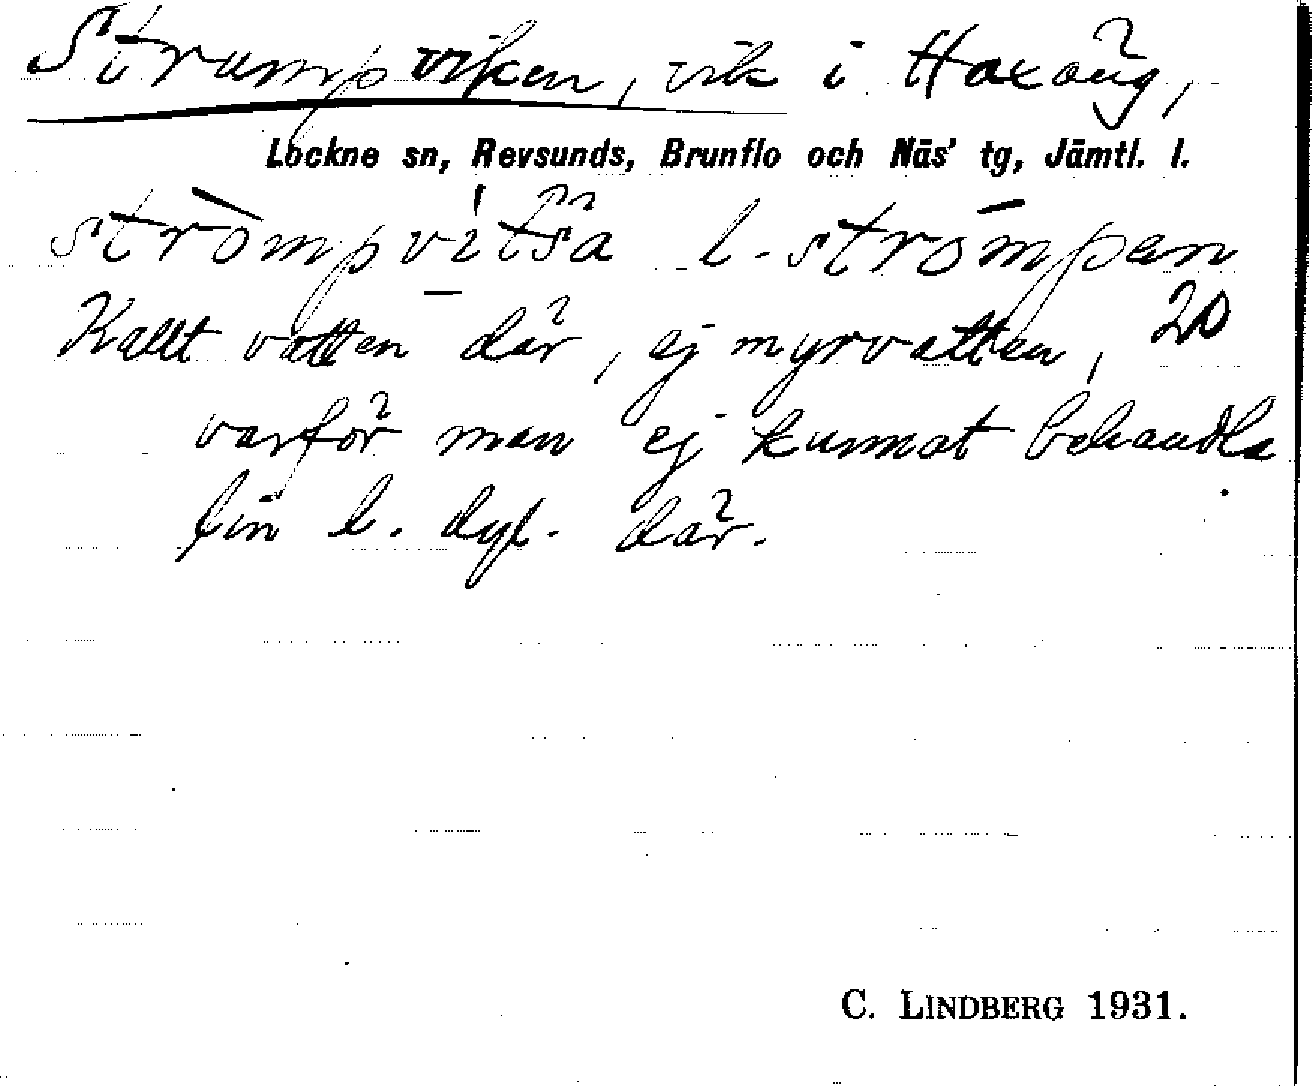 Strumpviken, vik i Haxäng,
Lockne sn, Revsunds, Brunflo och Näs' tg, Jämtl. l.
stròmpvitša l. strömpen
Kallt vatten där, ej myrvatten, 20
varför man ej kunnat behandla
lin l. dyl. där.
C. LINDBERG 1931.